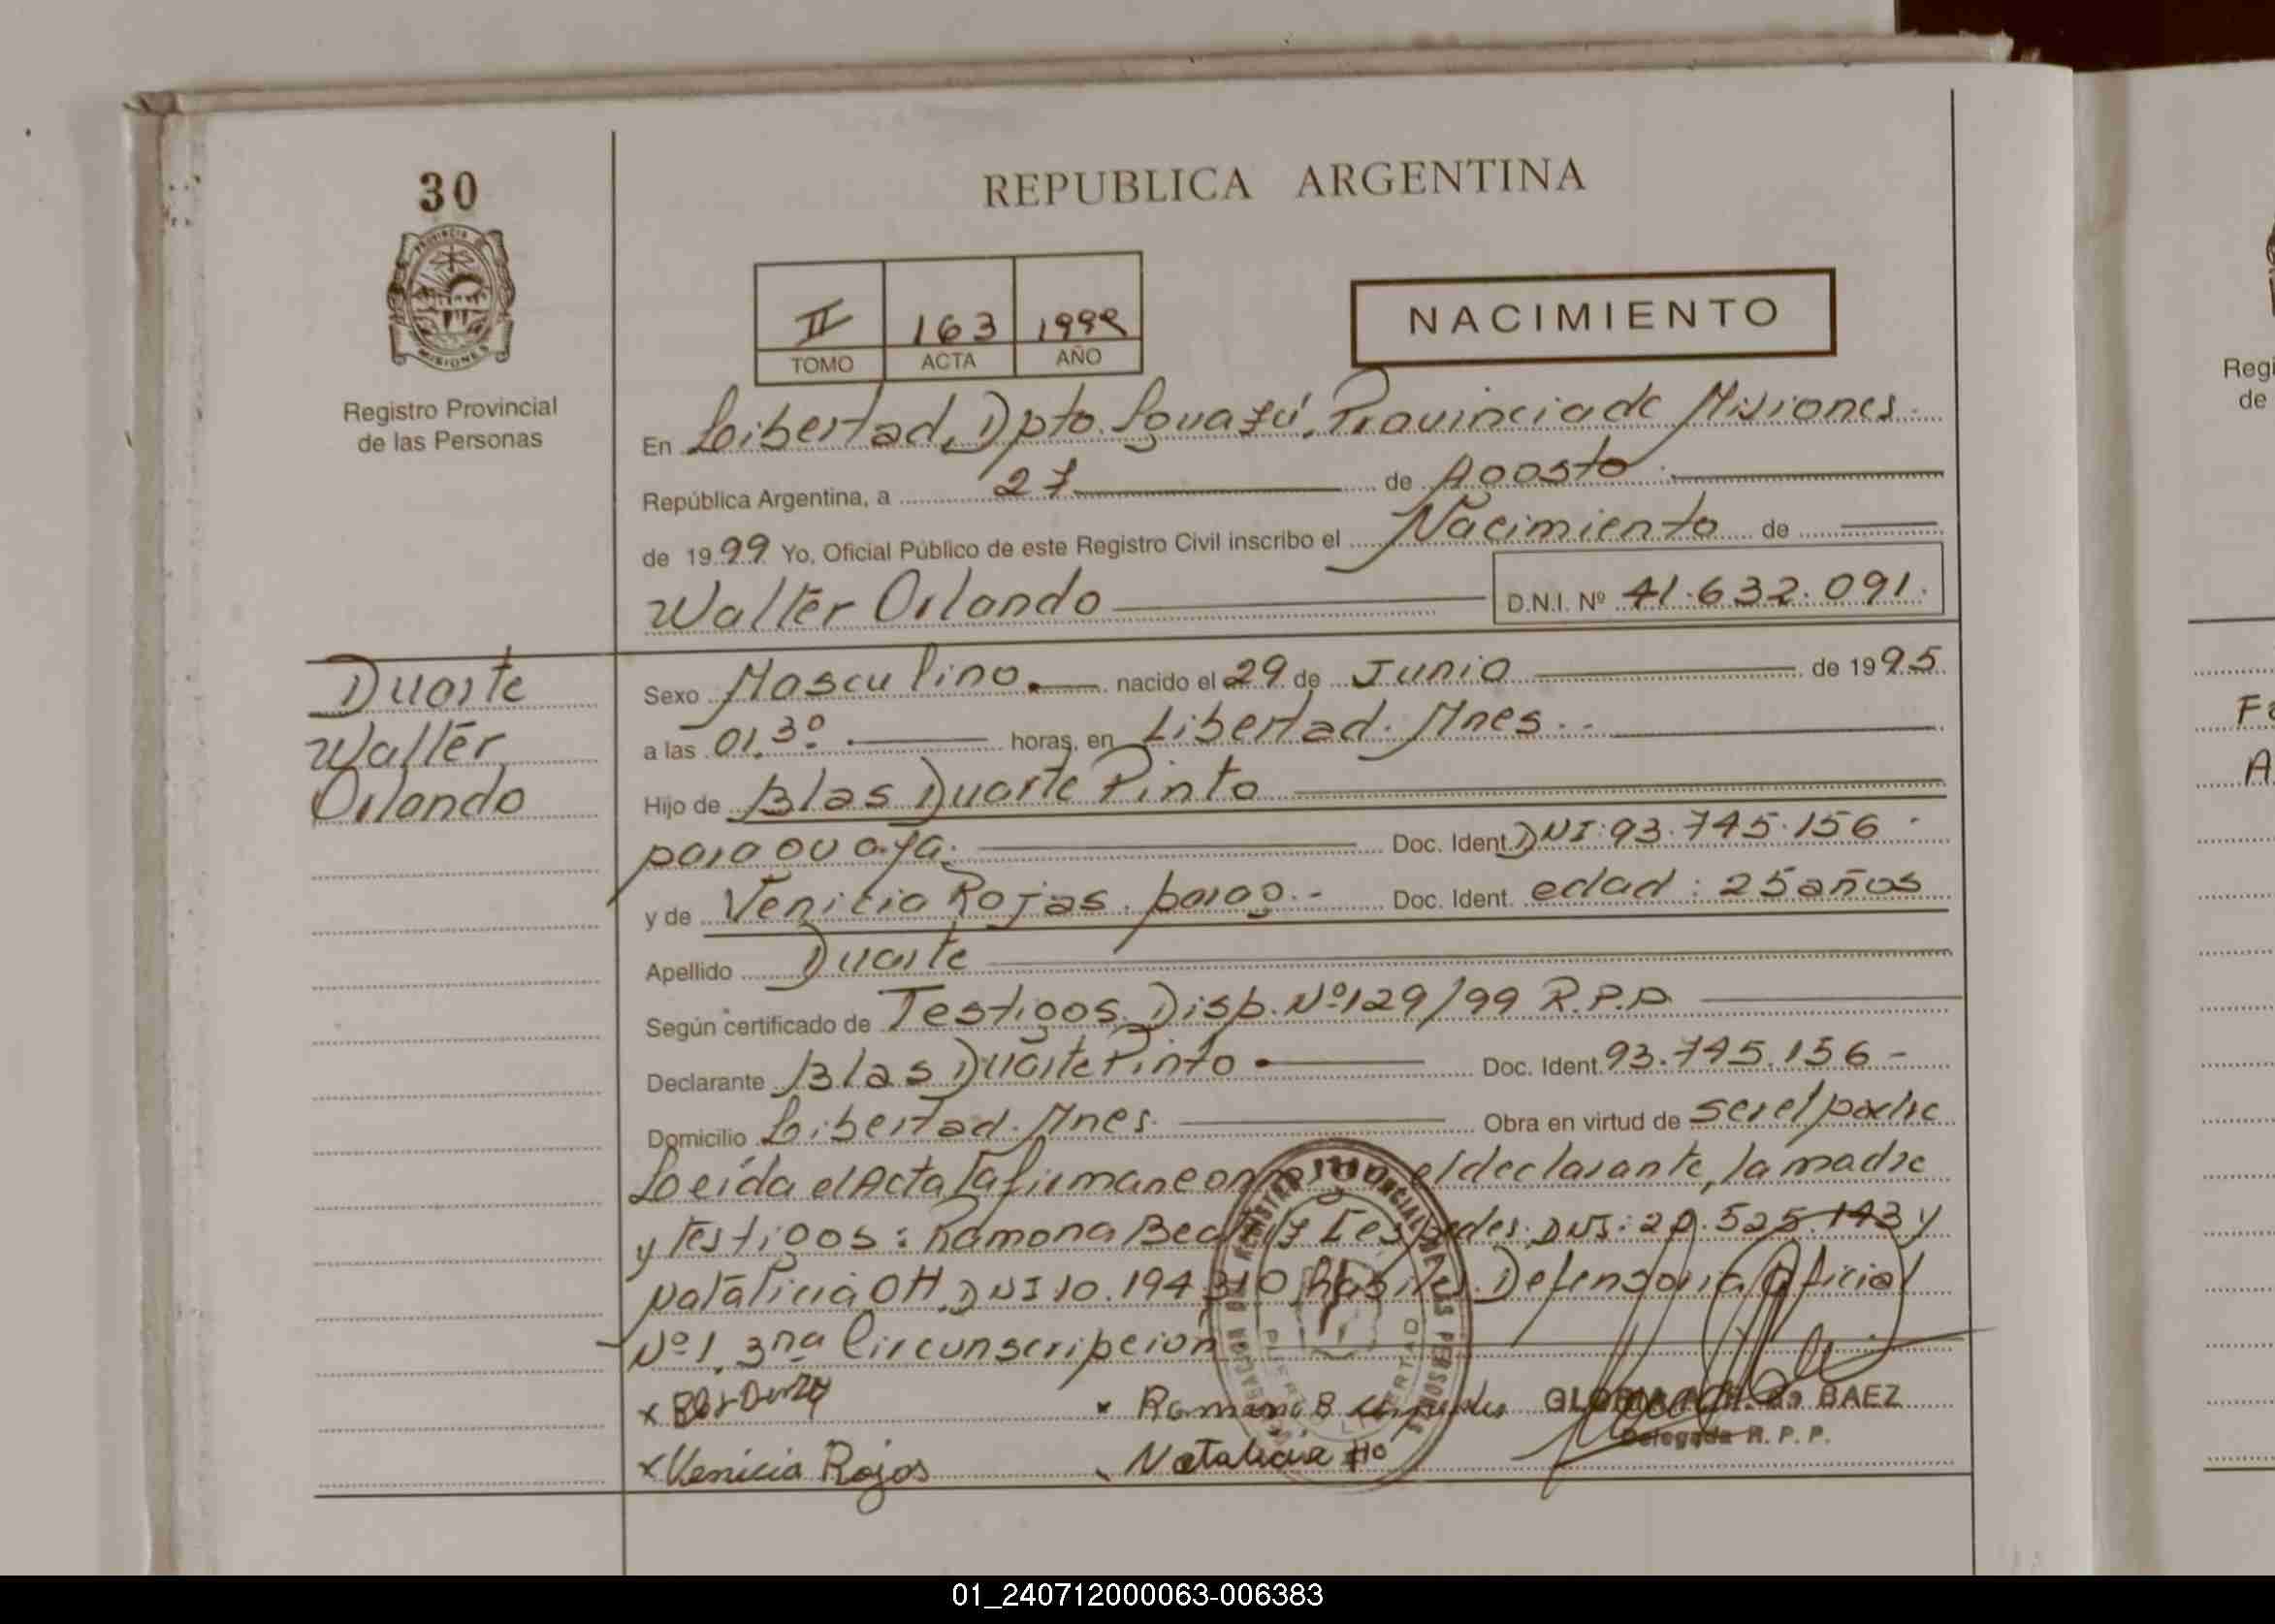 30
PROVINCIA DE
MISIONES
Registro Provincial
de las Personas
REPUBLICA ARGENTINA
II 163 1999
TOMO ACTA AÑO
NACIMIENTO
En Libertad, Dpto. Iguazú, Provincia de Misiones
República Argentina, a 27 de Agosto
de 1999 Yo, Oficial Público de este Registro Civil inscribo el Nacimiento de
Walter Orlando D.N.I. Nº 41.632.091.
Duarte
Walter
Orlando
Sexo Masculino. nacido el 29 de Junio de 1995
a las 01.30 horas, en Libertad. Mnes.
Hijo de Blas Duarte Pinto
paraguaya. Doc. Ident. DNI: 93.745.156
y de Venicia Rojas. parag. Doc. Ident. edad: 25 años
Apellido Duarte
Según certificado de Testigos Disp. Nº 129/99 R.P.P.
Declarante Blas Duarte Pinto Doc. Ident. 93.745.156
Domicilio Libertad. Mnes. Obra en virtud de ser el padre
Leída el Acta la firman el declarante, la madre
y Testigos: Ramona Beatriz DNI: 20.525.143 y
Natalicia OH DNI 10.194.310 Defensoria Oficial
Nº 1. 3ra Circunscripcion
x Blas x Ramona B BAEZ
Delegada R. P. P.
x Venicia Rojas Natalicia
PUERTO LIBERTAD
Regi
de
Fa
A
01_240712000063-006383